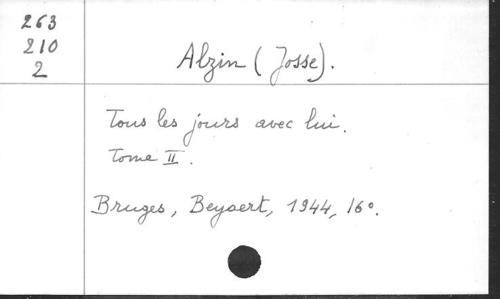 263
210
2
Alzin (Josse).
Tous les jours avec lui.
Tome II.
Bruges, Beyaert, 1944, 16°.